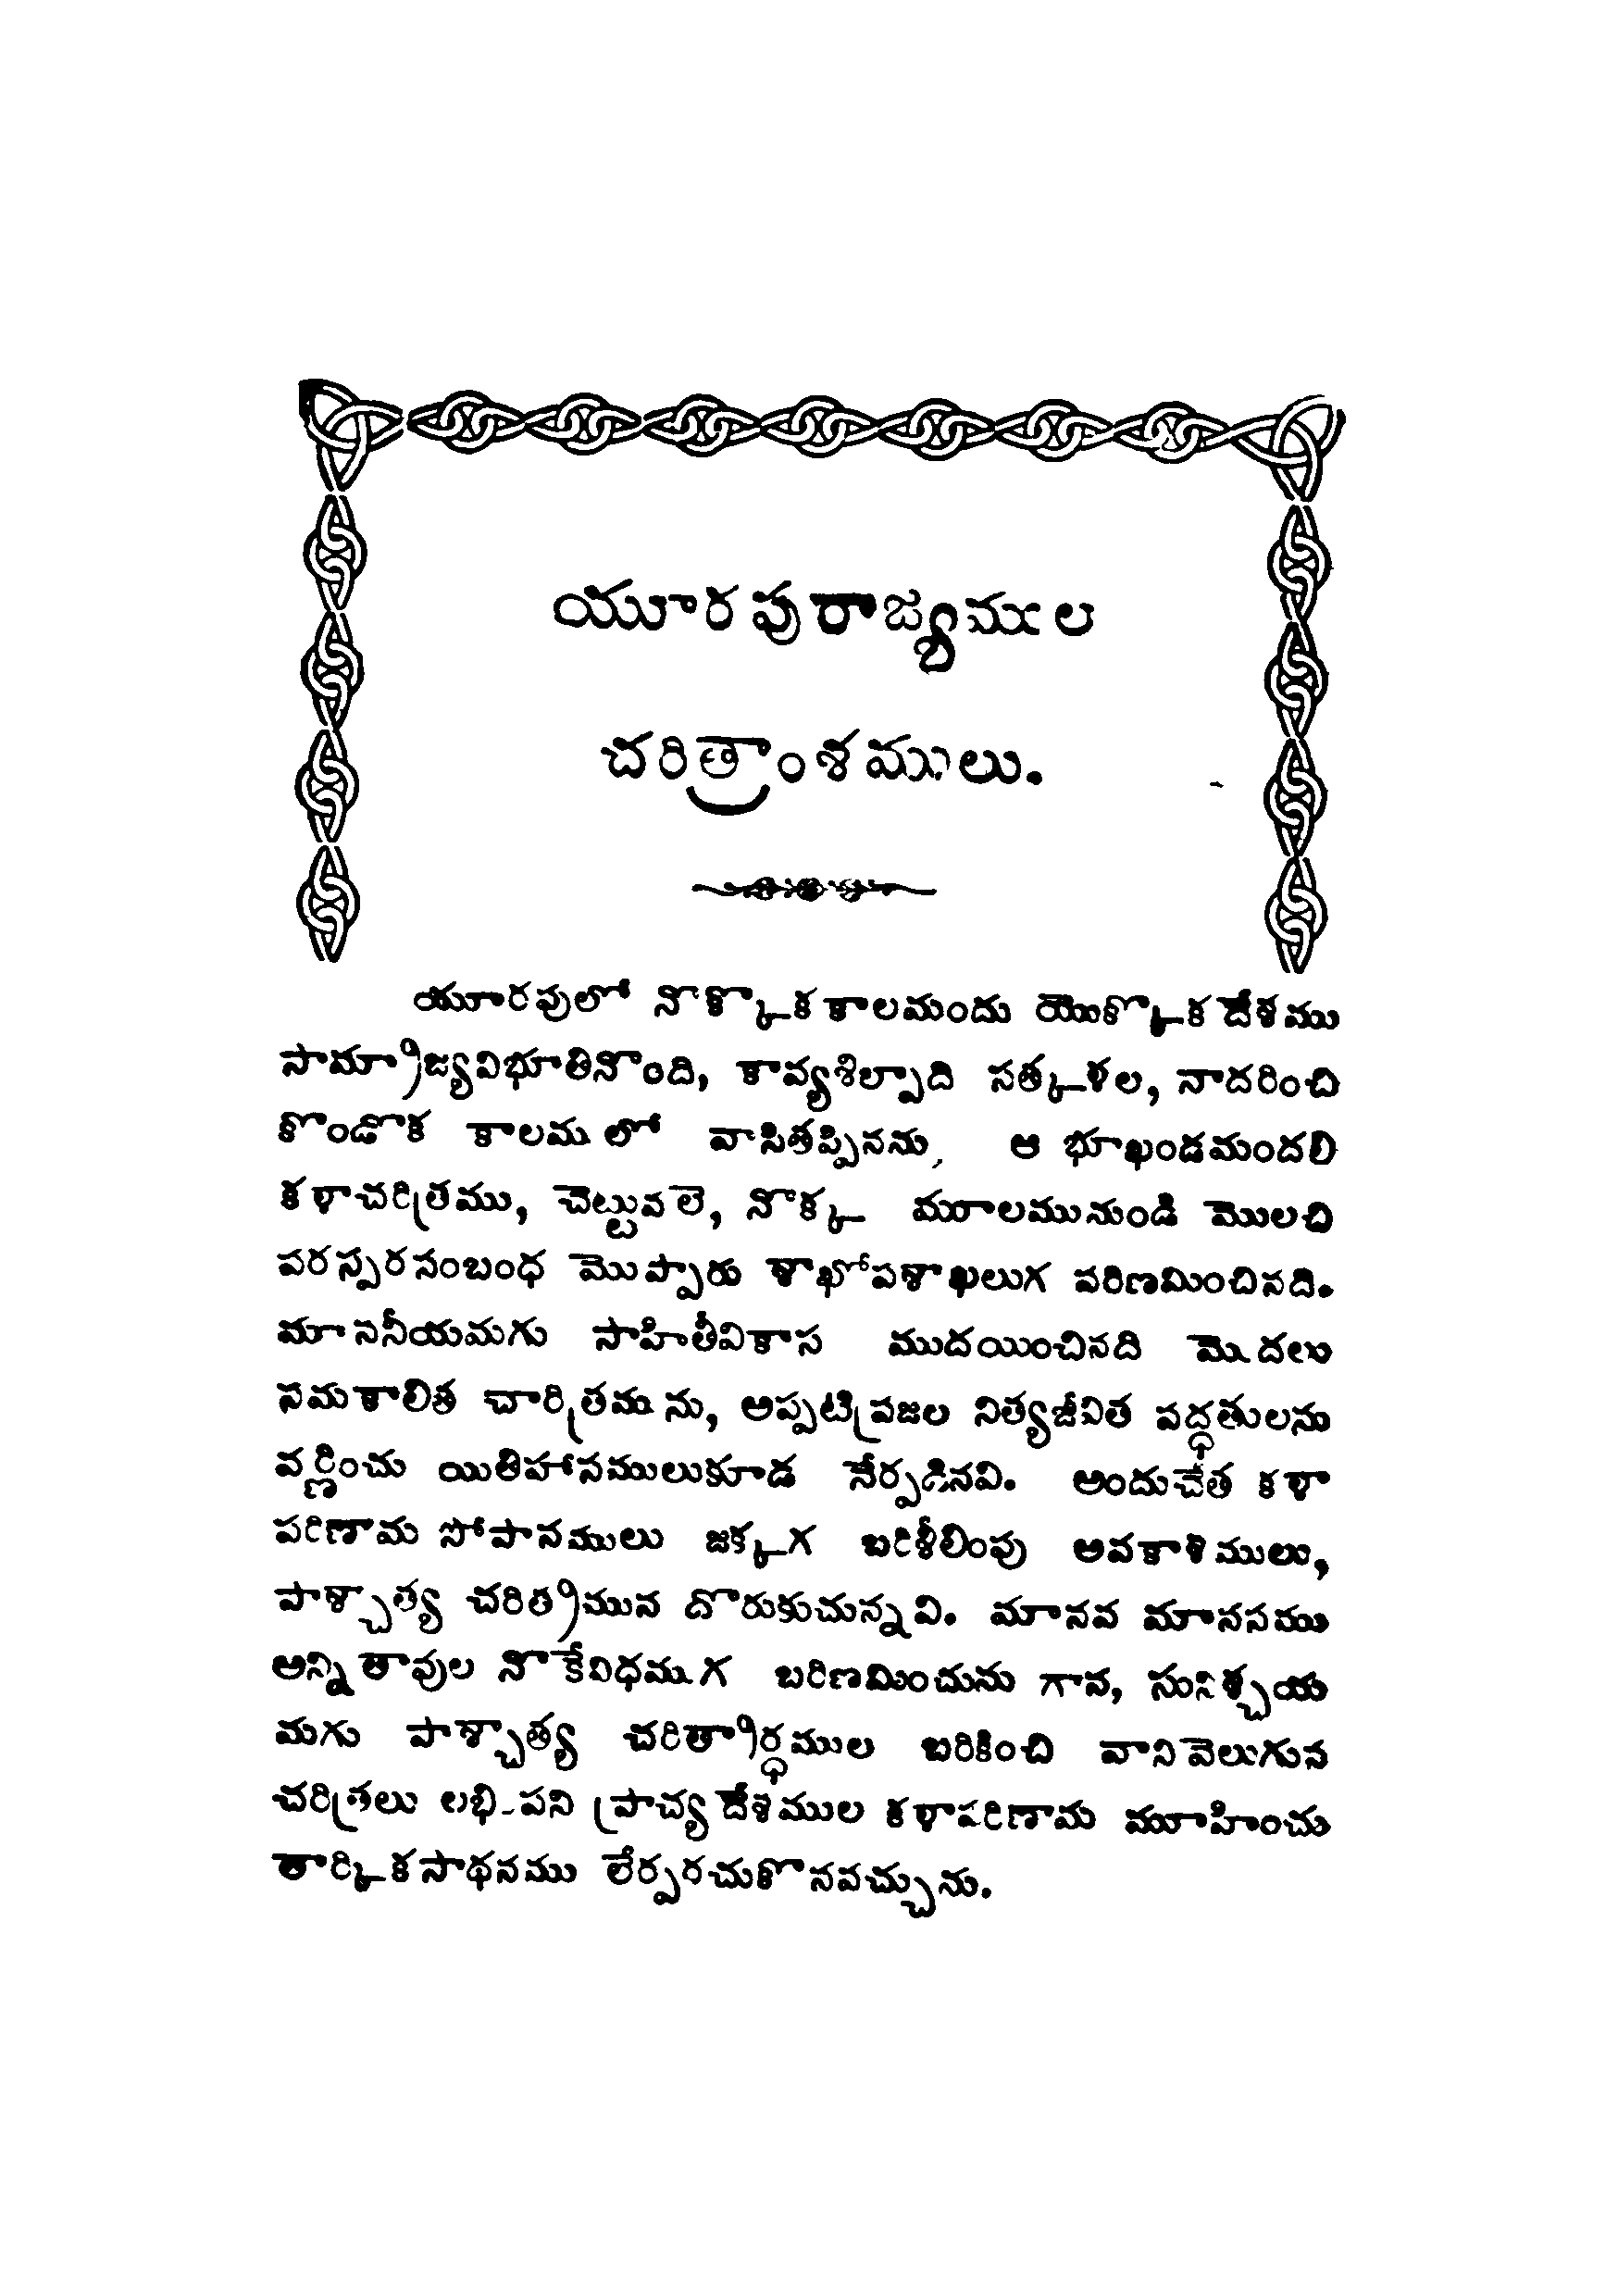 యూరపురాజ్యముల
చరిత్రాంశములు.
యూరపులో నొక్కొకకాలమందు యొక్కొకదేశము
సామ్రాజ్యవిభూతినొంది, కావ్యశిల్పాది సత్కళల, నాదరించి
కొండొక కాలములో వాసితప్పినను, ఆ భూఖండమందలి
కళాచరిత్రము, చెట్టువలె, నొక్క మూలమునుండి మొలచి
పరస్పరసంబంధ మొప్పారు శాఖోపశాఖలుగ పరిణమించినది.
మాననీయమగు సాహితీవికాస ముదయించినది మొదలు
సమకాలిత చారిత్రమును, అప్పటిప్రజల నిత్యజీవిత పద్ధతులను
వర్ణించు యితిహాసములుకూడ నేర్పడినవి. అందుచేత కళా
పరిణామ సోపానములు జక్కగ బరిశీలింపు అవకాశములు,
పాశ్చాత్య చరిత్రమున దొరుకుచున్నవి. మానవ మానసము
అన్ని తావుల నొకేవిధముగ బరిణమించును గాన, సునిశ్చయ
మగు పాశ్చాత్య చరితార్థముల బరికించి వానివెలుగున
చరిత్రలు లభింపని ప్రాచ్యదేశముల కళాపరిణామ మూహించు
తార్కికసాధనము లేర్పరచుకొనవచ్చును.